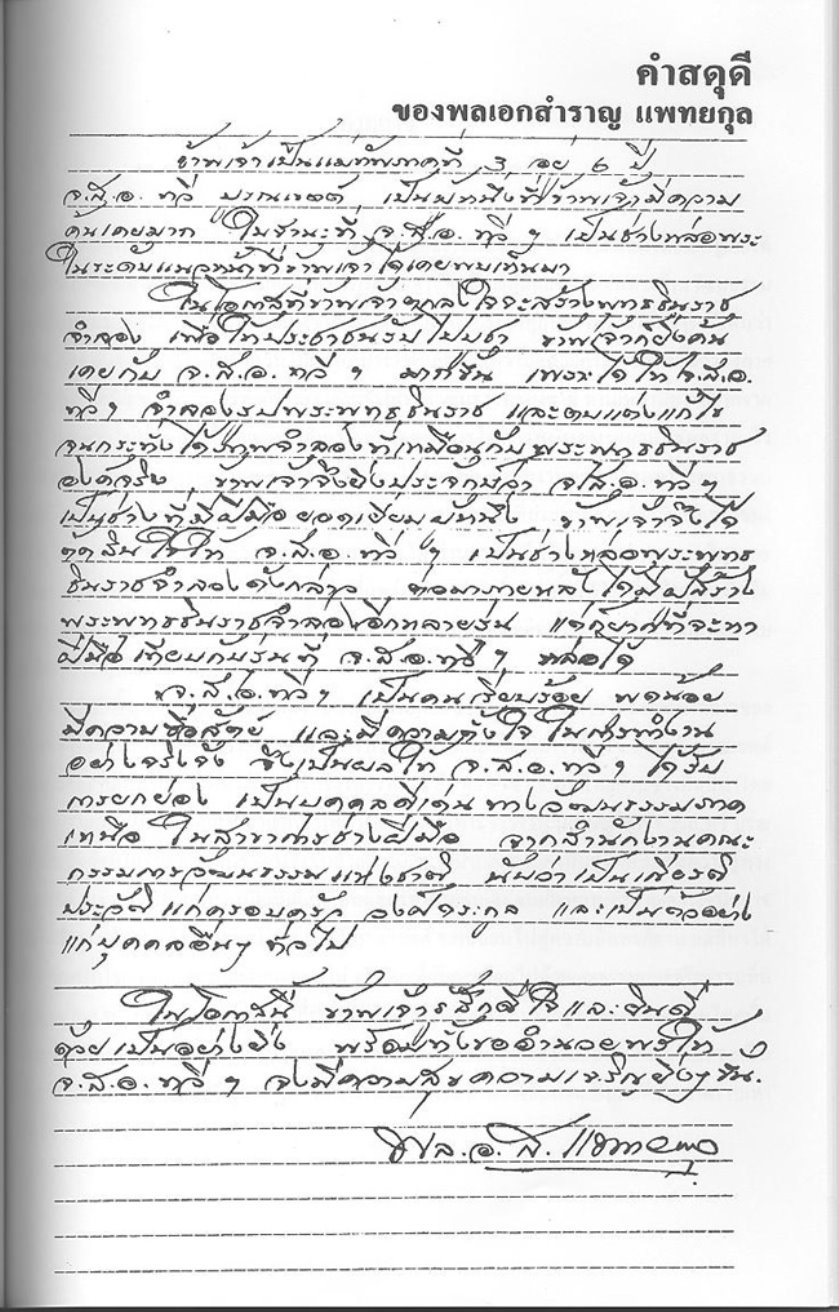 คำสดุดี
ของพลเอกสำราญ แพทยกุล
ข้าพเจ้าเป็นแม่ทัพภาคที่ 3 อยู่ 6 ปี
จ.ส.อ. ทวี บูรณเขตต์ เป็นผู้หนึ่งที่ข้าพเจ้ามีความ
คุ้นเคยมาก ในฐานะที่ จ.ส.อ. ทวี ฯ เป็นช่างหล่อพระ
ในระดับแนวหน้าที่ข้าพเจ้าได้เคยพบเห็นมา
ในโอกาสที่ข้าพเจ้าตกลงใจจะสร้างพุทธชินราช
จำลอง เพื่อให้ประชาชนรับไปบูชา ข้าพเจ้าก็ยิ่งคุ้น
เคยกับ จ.ส.อ. ทวี ฯ มากขึ้น เพราะได้ให้ จ.ส.อ.
ทวี ฯ จำลองรูปพระพุทธชินราช และตบแต่งแก้ไข
จนกระทั่งได้รูปจำลองที่เหมือนกับพระพุทธชินราช
องค์จริง ข้าพเจ้าจึงยิ่งประจักษ์ว่า จ.ส.อ. ทวี ฯ
เป็นช่างที่มีฝีมือยอดเยี่ยมผู้หนึ่ง ข้าพเจ้าจึงได้
ตัดสินใจให้ จ.ส.อ. ทวี ฯ เป็นช่างหล่อพระพุทธ
ชินราชจำลองดังกล่าว ต่อมาภายหลังได้มีผู้สร้าง
พระพุทธชินราชจำลองอีกหลายรุ่น แต่ก็ยากที่จะหา
ฝีมือเทียบกับรุ่นที่ จ.ส.อ. ทวี ฯ หล่อได้
จ.ส.อ. ทวี ฯ เป็นคนเรียบร้อย พูดน้อย
มีความซื่อสัตย์ และมีความตั้งใจในการทำงาน
อย่างจริงจัง จึงเป็นผลให้ จ.ส.อ. ทวี ฯ ได้รับ
การยกย่อง เป็นบุคคลดีเด่นทางวัฒนธรรมภาค
เหนือ ในสาขาการช่างฝีมือ จากสำนักงานคณะ
กรรมการวัฒนธรรมแห่งชาติ นับว่าเป็นเกียรติ
ประวัติแก่ครอบครัว วงศ์ตระกูล และเป็นตัวอย่าง
แก่บุคคลอื่นๆ ทั่วไป
ในโอกาสนี้ ข้าพเจ้ารู้สึกดีใจและยินดี
ด้วยเป็นอย่างยิ่ง พร้อมทั้งขออำนวยพรให้
จ.ส.อ. ทวี ฯ จงมีความสุขความเจริญยิ่งๆ ขึ้น.
พล.อ. ส. แพทยกุล